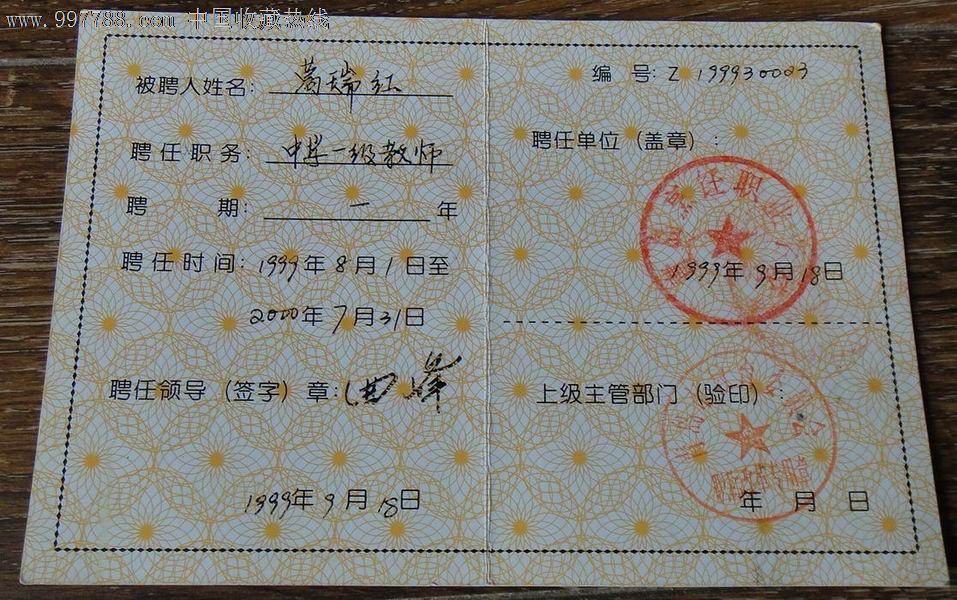 www.997788.com 中国收藏热线
被聘人姓名: 葛瑞红
聘任职务: 中学一级教师
聘 期: 一 年
聘任时间: 1999年8月1日至
2000年7月31日
聘任领导 (签字) 章:
1999年9月18日
编 号: Z 199930023
聘任单位 (盖章) :
烹饪职业
1999年9月18日
上级主管部门 (验印) :
专用章
年 月 日